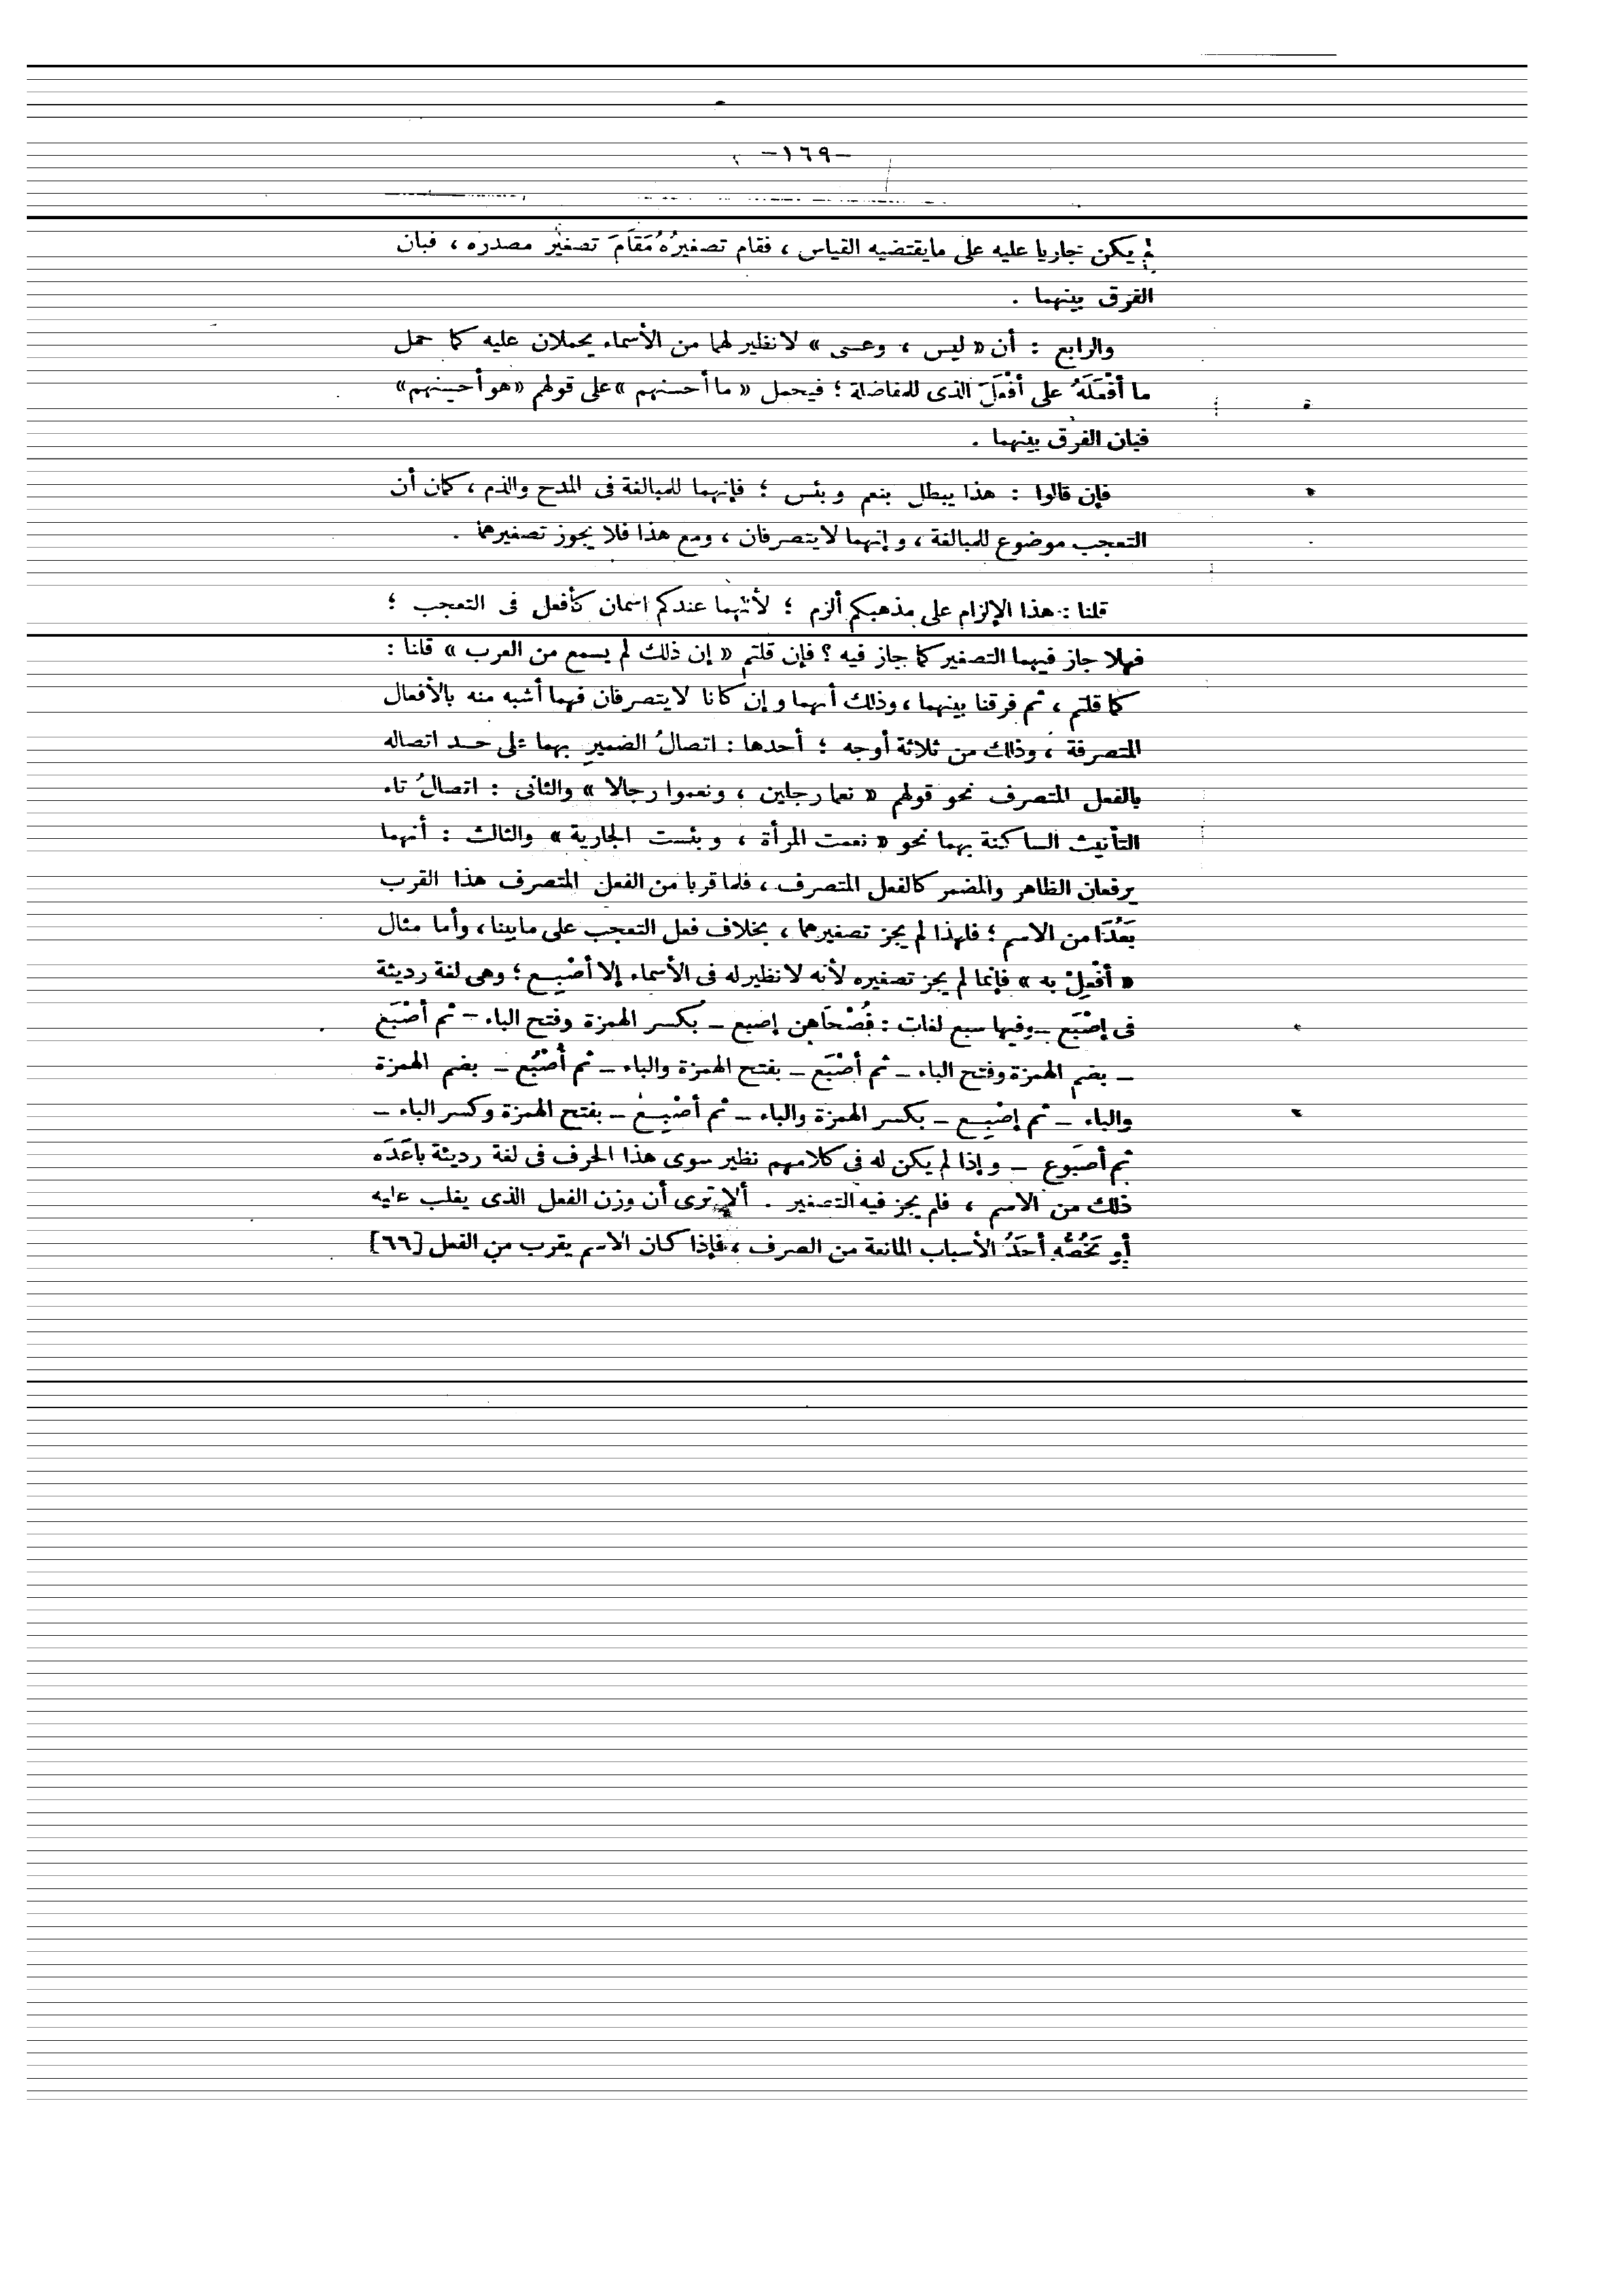 -١٦٩-
لم يكن جاريا عليه على مايقتضيه القياس ، فقام تصغيرُهُ مَقَامَ تصغير مصدره ، فبان
الفرق بينهما .
والرابع : أن « ليس ، وعسى » لا نظير لهما من الأسماء يحملان عليه كما حمل
ما أفْعَلَهُ على أفْعَلَ الذى للمفاضلة ؛ فيحمل « ما أحسنهم » على قولهم « هو أحسنهم »
فبان الفرق بينهما .
فإن قالوا : هذا يبطل بنعم وبئس ؛ فإنهما للمبالغة فى المدح والذم ، كما أن
التعجب موضوع للمبالغة ، وإنهما لا يتصرفان ، ومع هذا فلا يجوز تصغيرهما .
قلنا : هذا الإلزام على مذهبكم ألزم ؛ لأنهما عندكم اسمان كأفعل فى التعجب ؛
فهلا جاز فيهما التصغير كما جاز فيه ؟ فإن قلتم « إن ذلك لم يسمع من العرب » قلنا :
كما قلتم ، ثم فرقنا بينهما ، وذلك أنهما وإن كانا لا يتصرفان فهما أشبه منه بالأفعال
المتصرفة ، وذلك من ثلاثة أوجه ؛ أحدها : اتصالُ الضميرِ بهما على حـد اتصاله
بالفعل المتصرف نحو قولهم « نعما رجلين ، ونعموا رجالا » والثانى : اتصالُ تاء
التأنيث الساكنة بهما نحو « نعمت المرأة ، وبئست الجارية » والثالث : أنهما
يرفعان الظاهر والمضمر كالفعل المتصرف ، فلما قربا من الفعل المتصرف هذا القرب
بَعُدَا من الاسم ؛ فلهذا لم يجز تصغيرهما ، بخلاف فعل التعجب على مابينا ، وأما مثال
« أفْعِلْ به » فإنما لم يجز تصغيره لأنه لا نظير له فى الأسماء إلا أصْبِـع ؛ وهى لغة رديئة
فى إصْبَع ــ وفيها سبع لغات : فُصْحَاهن إصبع ــ بكسر الهمزة وفتح الباء ــ ثم أصْبَع
ــ بضم الهمزة وفتح الباء ــ ثم أصْبَع ــ بفتح الهمزة والباء ــ ثم أُصْبُع ــ بضم الهمزة
والباء ــ ثم إصْبِـع ــ بكسر الهمزة والباء ــ ثم أصْبِـع ــ بفتح الهمزة وكسر الباء ــ
ثم أصبوع ــ وإذا لم يكن له فى كلامهم نظير سوى هذا الحرف فى لغة رديئة باعَدَه
ذلك من الاسم ، فلم يجز فيه التصغير . ألا ترى أن وزن الفعل الذى يغلب عليه
أو يَخُصُّه أحَدُ الأسباب المانعة من الصرف ، فإذا كان الاسم يقرب من الفعل [٦٦]